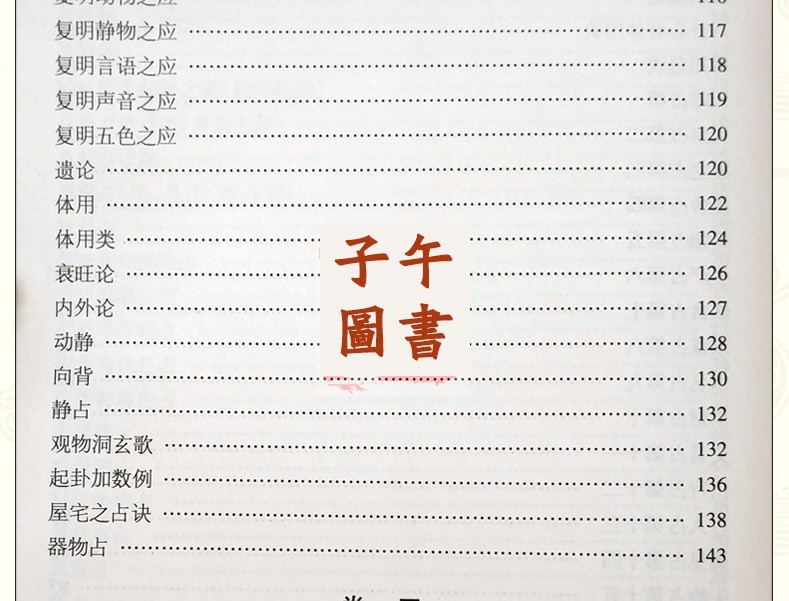 复明静物之应 ………… 117
复明言语之应 ………… 118
复明声音之应 ………… 119
复明五色之应 ………… 120
遗论 ………… 120
体用 ………… 122
体用类 ………… 124
衰旺论 ………… 126
内外论 ………… 127
动静 ………… 128
向背 ………… 130
静占 ………… 132
观物洞玄歌 ………… 132
起卦加数例 ………… 136
屋宅之占诀 ………… 138
器物占 ………… 143
子午
圖書